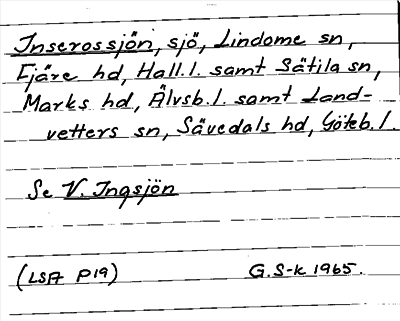 Inserossjön, sjö, Lindome sn,
Fjäre hd, Hall.l. samt Sätila sn,
Marks hd, Älvsb.l. samt Land-
vetters sn, Sävedals hd, Göteb.l.
Se V. Ingsjön
(LSA P19) G.S-k 1965.